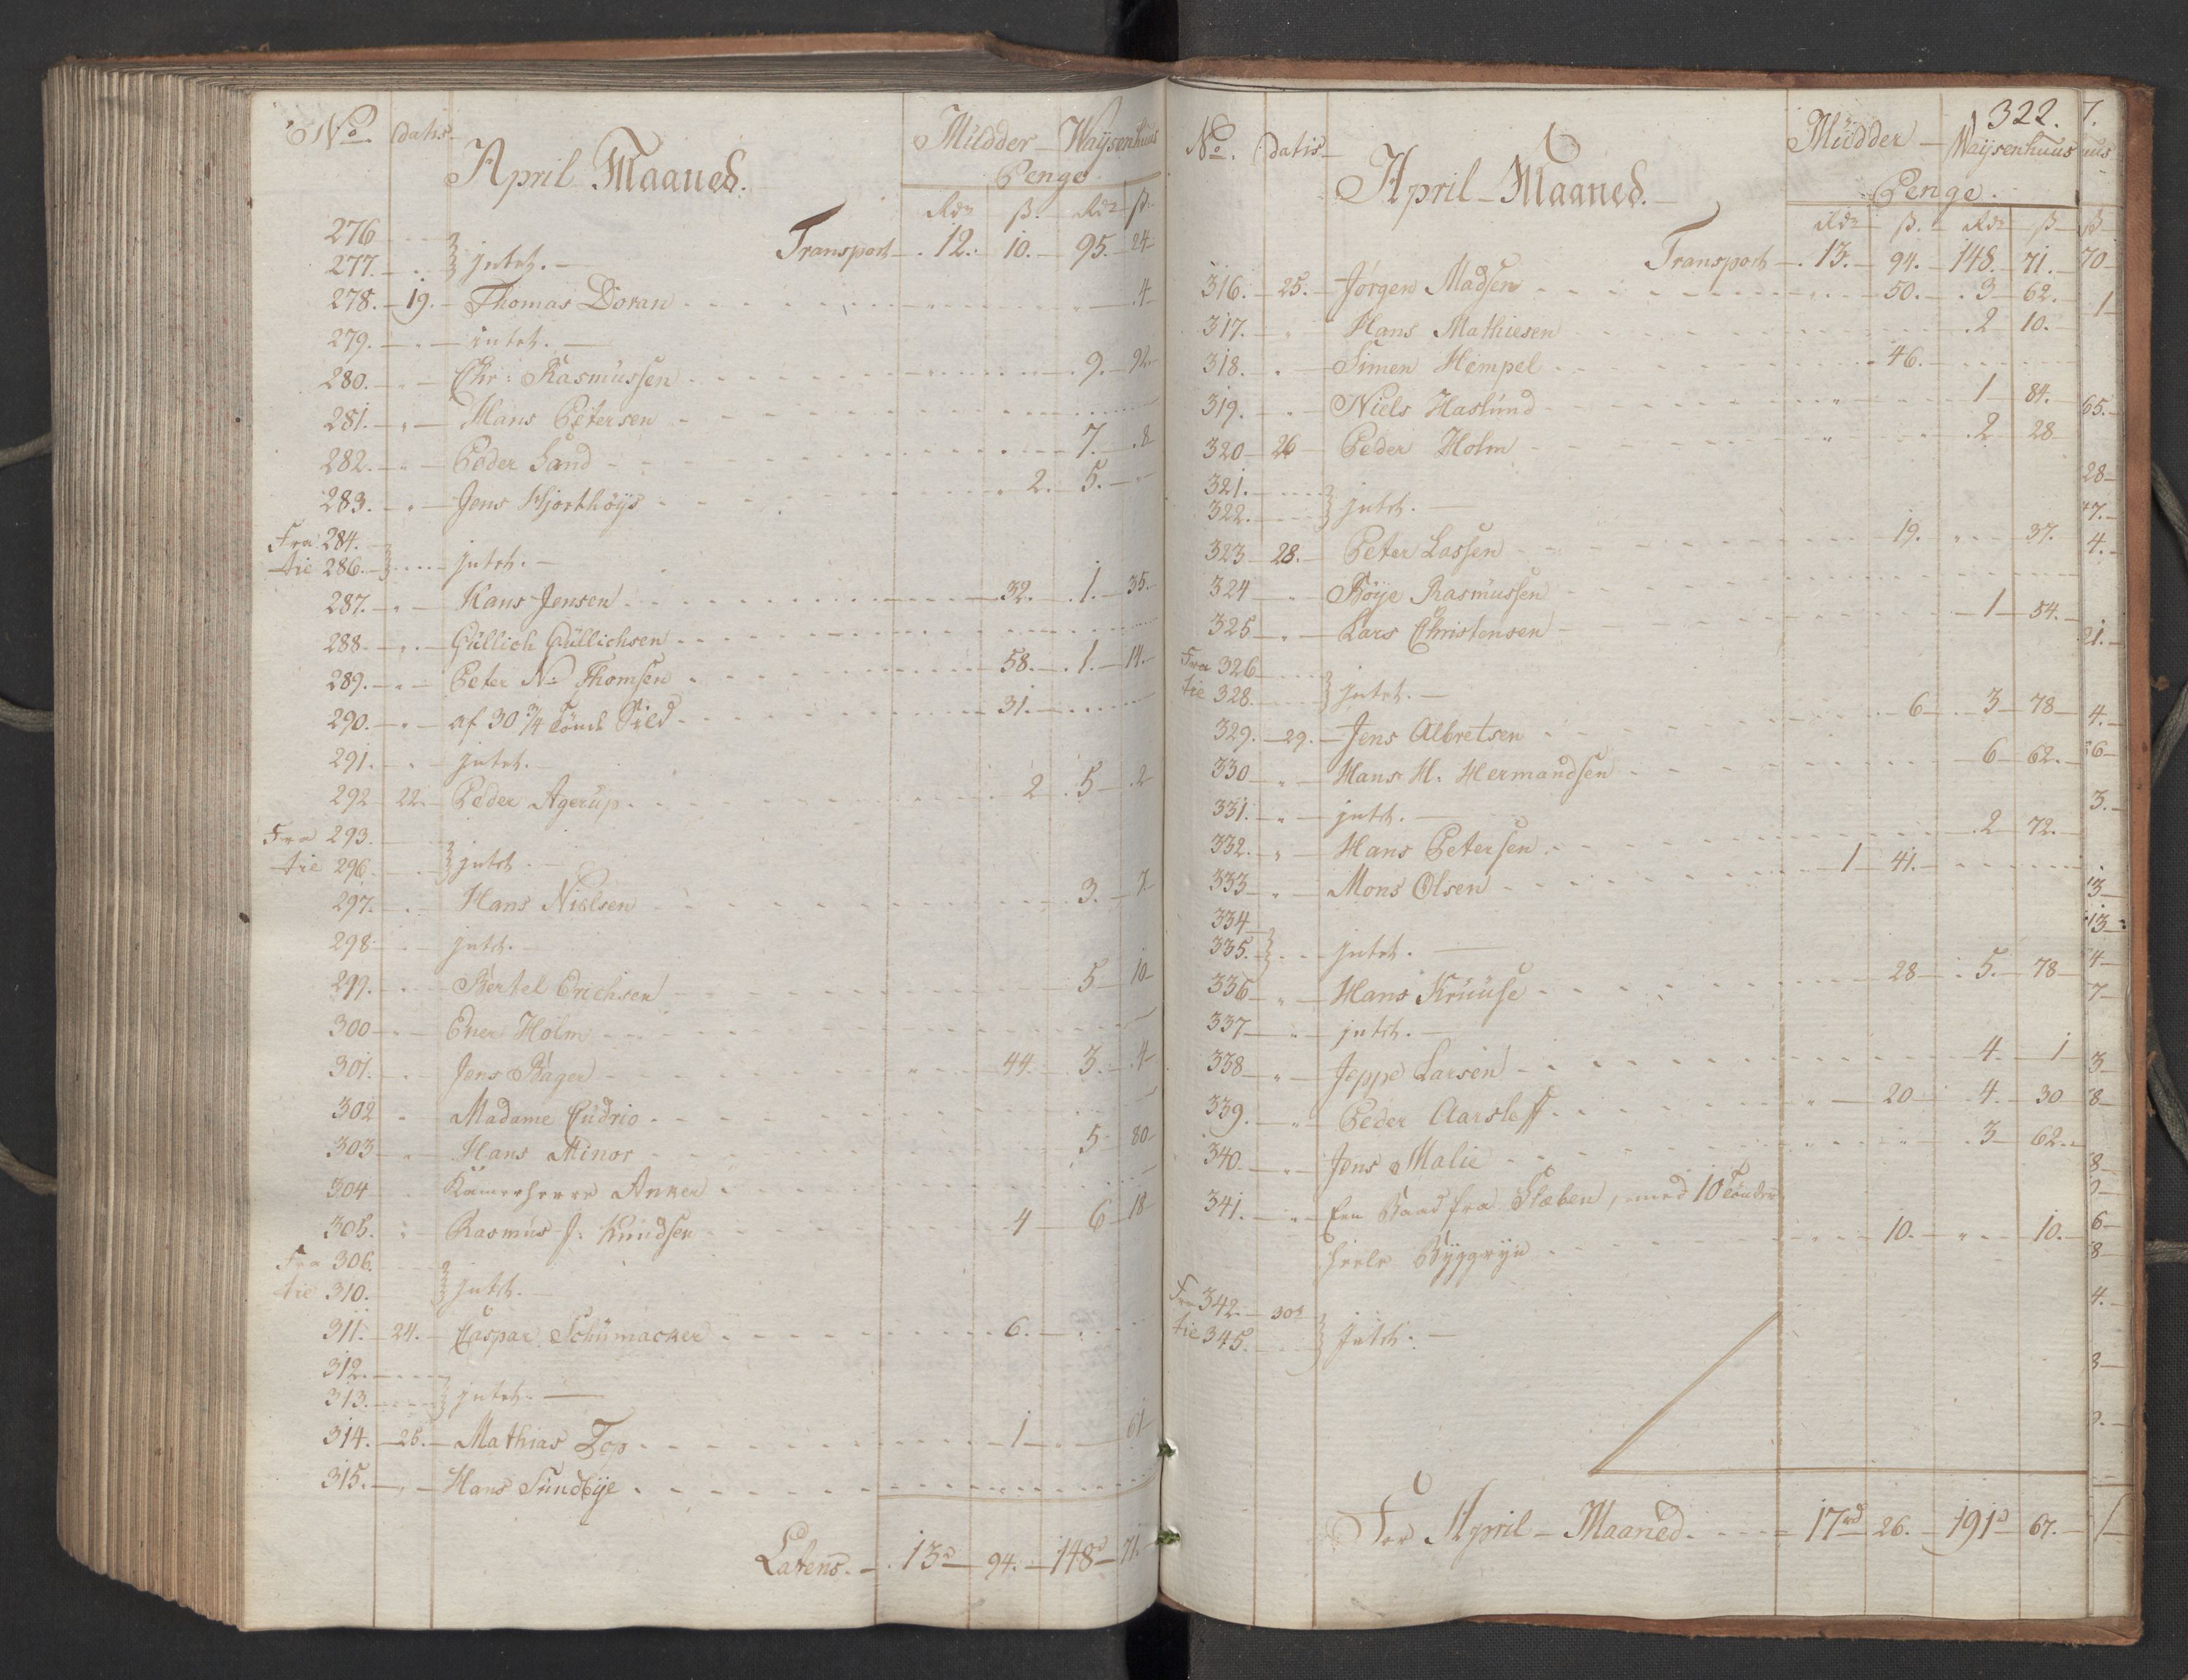 No. Datis April Maaned. Mudder Waysenhuus
Penge
Rdr ß. Rdr ß.
276
277. intet. Transport 12. 10. 95. 24
278. 19. Thomas Doran 4
279. intet.
280. Chr: Rasmussen 9. 92
281. Hans Petersen
282. Peder Sand 7. 8
283. Jens Hjorthöys 2. 5.
Fra 284.
tie 286. intet.
287. Hans Jensen 32. 1. 35.
288. Güllich Güllichsen
289. Peter N. Thomsen 58. 1. 14.
290. af 30 3/4 Tönde Sild 31.
291. intet.
292 22. Peder Agerup 2 5 2
Fra 293.
tie 296. intet.
297. Hans Nielsen 3. 7
298 intet.
299. Bertel Erichsen 5 10
300 Ener Holm
301. Jens Bager 44. 3. 4
302 Madame Cudrio
303 Hans Minor 5 80
304 Kamerherre Anker
305. Rasmus J. Knudsen 4 6 18
Fra 306.
tie 310. intet.
311. 24. Caspar Schumacker 6.
312.
313. intet.
314. 25. Mathias Top 1 61
315. Hans Sundbye
Latens. 13 94. 148 71.
322.
No. Datis April Maaned. Mudder Waysenhuus
Penge.
Rdr ß. Rdr ß
Transport 13. 94. 148. 71.
316. 25. Jørgen Madsen 50. 3 62.
317. Hans Mathiesen 2 10.
318. Simen Hempel 46.
319. Niels Haslund 1 84.
320 26 Peder Holm 2 28
321.
322. intet.
323 28. Peter Lassen 19. 37.
324 Böye Rasmussen
325 Lars Christensen 1 54.
Fra 326
tie 328. intet.
329. 29. Jens Albretsen 6 3 78
330 Hans H. Hermandsen 6 62.
331. intet.
332. Hans Petersen 2 72.
333 Mons Olsen 1 41.
334
335. intet.
336 Hans Kruuse 28 5. 78
337 intet.
338 Jeppe Larsen 4. 1
339. Peder Aarsleff 20 4. 30
340. Jens Malie 3 62.
341. Een Baad fra Stæben, med 10 Tønder
heele Byggryn 10. 10.
Fra 342. 30
tie 345. intet.
For April Maaned. 17 rd 26. 191 67.